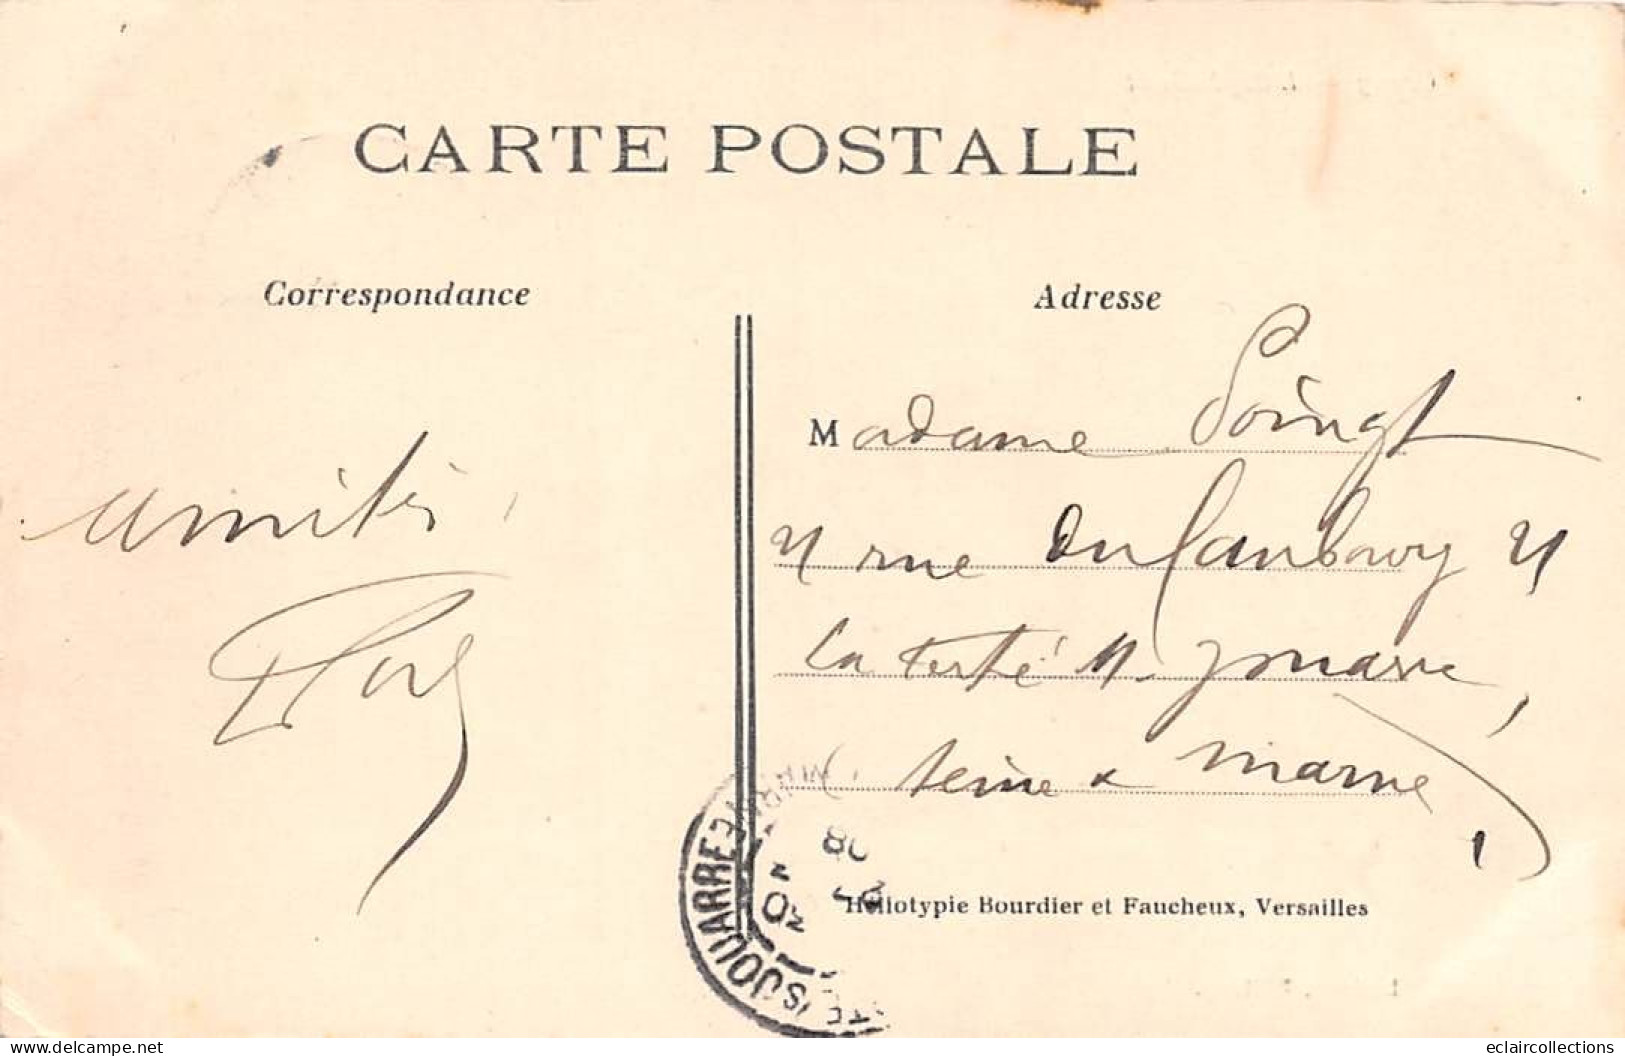 CARTE POSTALE
Correspondance
Adresse
Madame Poingt
21 rue du faubourg 21
La ferté s. Jouarre,
seine & marne,
amitiés
Héliotypie Bourdier et Faucheux, Versailles
JOUARRE
08
delcampe.net
eclaircollections